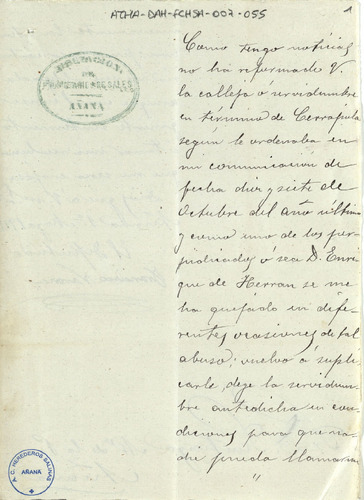 ATHA-DAH-FCHSA-007-055
1
AÑANA
Como tengo noticias
no ha reformado V.
la calleja o servidumbre
en término de Terrazuela
según le ordenaba en
mi comunicación de
fecha diez y siete de
Octubre del año último
y como uno de los per-
judicados ó sea D. Enri-
que de Herran se me
ha quejado en dife-
rentes ocasiones de tal
abuso; vuelvo á supli-
carle, deje la servidum-
bre antedicha en con-
diciones para que na-
die pueda llamarse
"
A.C. HEREDEROS SALINAS
AÑANA